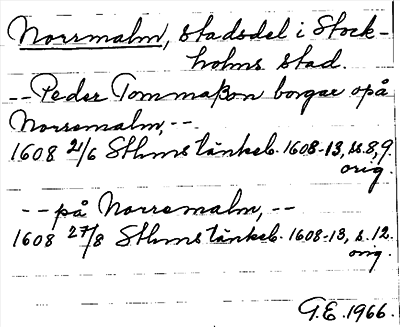 Norrmalm, stadsdel i Stock-
holms stad.
-- Peder Tommaßon borgae opå
Norremalm, --
1608 21/6 Sthms tänkeb. 1608-13, s. 8, 9.
orig.
-- på Norremalm, --
1608 27/8 Sthms tänkeb. 1608-13, s. 12.
orig.
G.E. 1966.